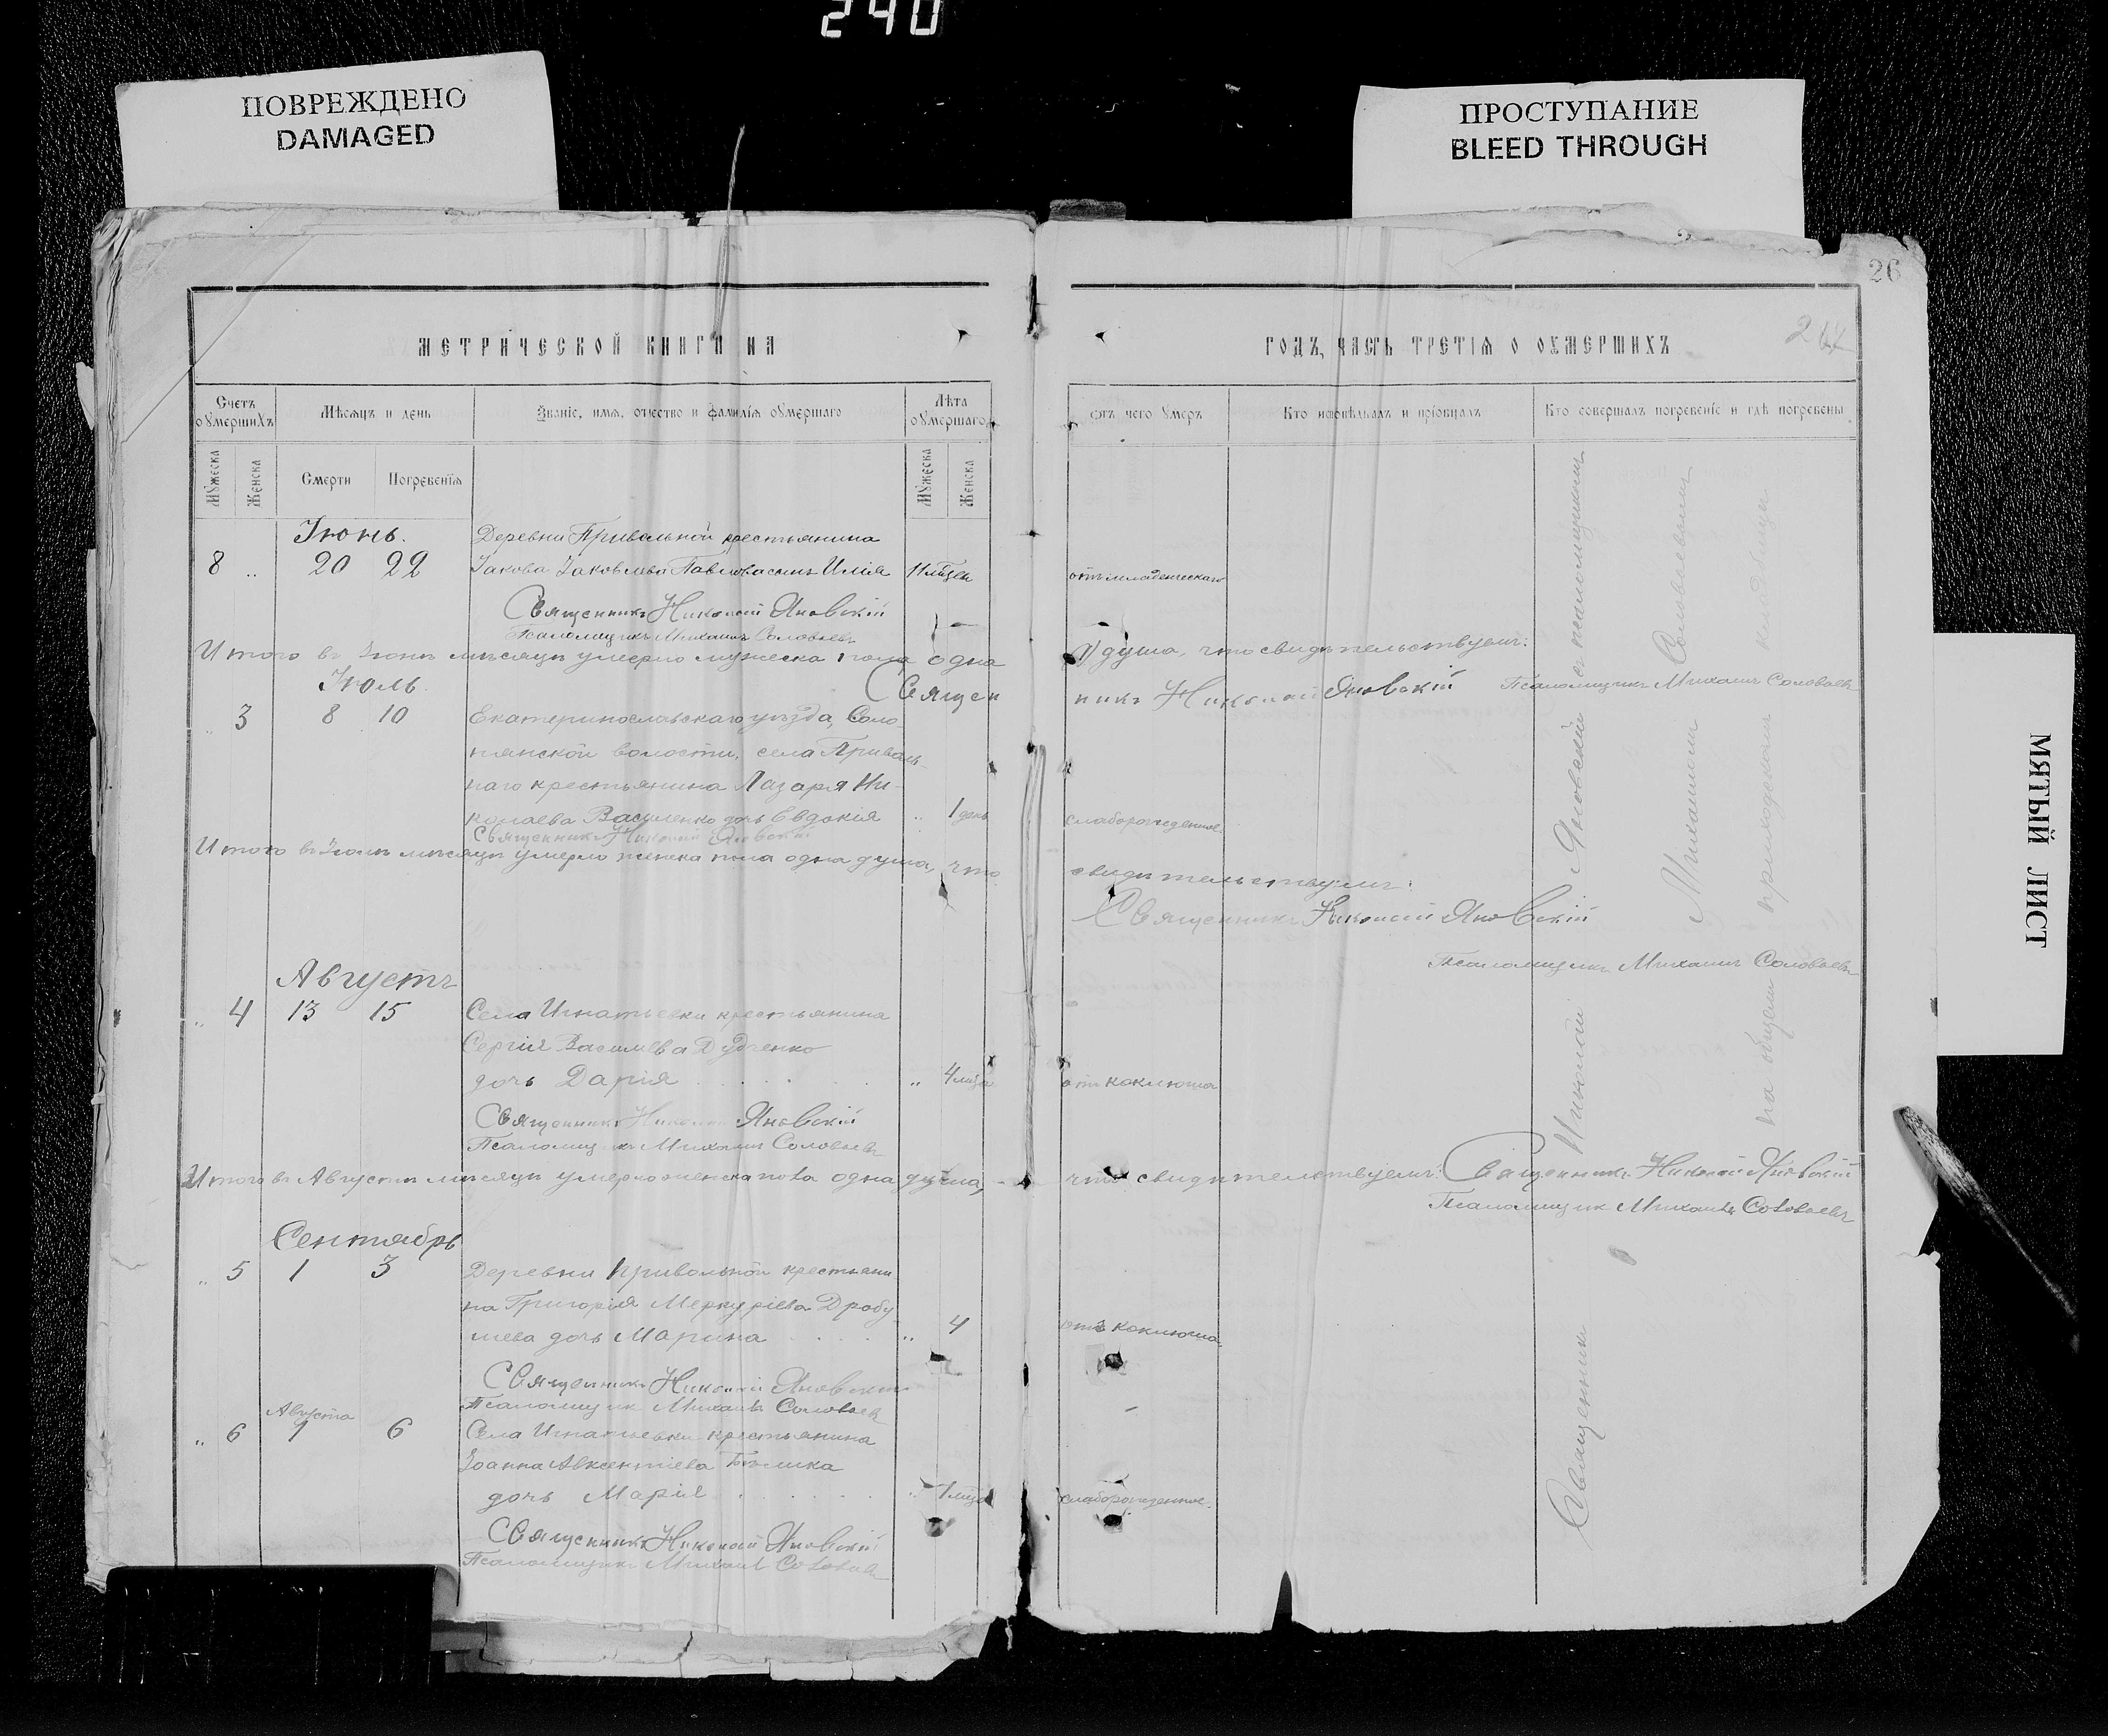 240
ПОВРЕЖДЕНО
DAMAGED
ПРОСТУПАНИЕ
BLEED THROUGH
МЯТЫЙ ЛИСТ
26
МЕТРИЧЕСКОЙ КНИГИ НА
ГОДЪ, ЧАСТЬ ТРЕТІЯ О ОУМЕРШИХЪ
Счетъ оумершихъ
Мѣсяцъ и день
Званіе, имя, отчество и фамилія оумершаго
Лѣта оумершаго
Отъ чего умеръ
Кто исповѣдывалъ и пріобщалъ
Кто совершалъ погребеніе и гдѣ погребены
Мужеска
Женска
Смерти
Погребенія
Мужеска
Женска
Іюнь.
Деревни Привольной крестьянина
8 „ 20 22 Іакова Іаковлева Павлова сынъ Илія 11 мѣсяц отъ младенческаго
Священникъ Николай Яновскій
Псаломщикъ Михаилъ Соловьевъ
Итого въ Іюнѣ мѣсяцѣ умерло мужеска пола одна (1) душа, что свидѣтельствуемъ:
Священникъ Николай Яновскій Псаломщикъ Михаилъ Соловьевъ
Іюль.
„ 3 8 10 Екатеринославскаго уѣзда, Соло-
нянской волости, села Приволь-
наго крестьянина Лазаря Ни-
колаева Василенко дочь Евдокія „ 1 день слаборожденное
Священникъ Николай Яновскій
Итого въ Іюлѣ мѣсяцѣ умерло женска пола одна душа, что свидѣтельствуемъ:
Священникъ Николай Яновскій
Псаломщикъ Михаилъ Соловьевъ
Августъ
„ 4 13 15 Села Игнатьевки крестьянина
Сергія Василіева Дудченко
дочь Дарія „ 4 мѣсяца отъ коклюша
Священникъ Николай Яновскій
Псаломщикъ Михаилъ Соловьевъ
Итого въ Августѣ мѣсяцѣ умерло женска пола одна душа, что свидѣтельствуемъ: Священникъ Николай Яновскій
Псаломщикъ Михаилъ Соловьевъ
Сентябрь
„ 5 1 3 Деревни Привольной крестьяни
на Григорія Меркуріева Дробу
шева дочь Марина „ 4 отъ коклюша
Священникъ Николай Яновскій
Псаломщикъ Михаилъ Соловьевъ
Августа
„ 6 1 6 Села Игнатьевки крестьянина
Іоанна Авксентіева Бѣлика
дочь Марія „ 1 мѣсяц слаборожденное.
Священникъ Николай Яновскій
Псаломщикъ Михаилъ Соловьевъ
Священникъ Николай Яновскій съ псаломщикомъ
Михаиломъ Соловьевымъ
на общемъ приходскомъ кладбищѣ